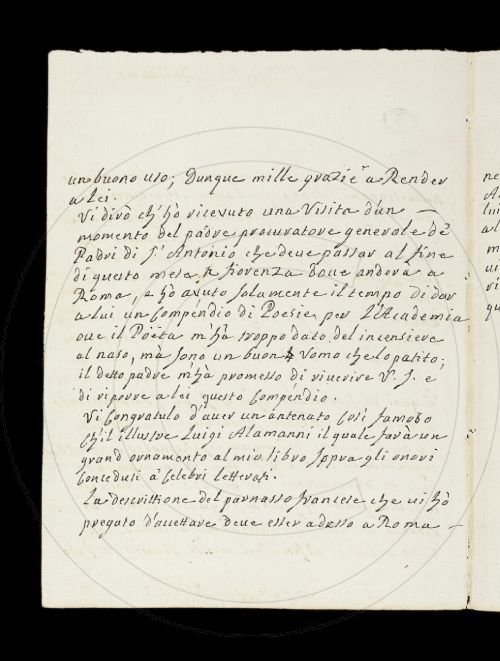 un buono uso; Dunque mille grazie a Render
a lei.
Vi dirò ch'hò ricevuto una Visita d'un —
momento del padre procuratore generale de
Padri di S. Antonio che deve passar al fine
di questo mese a fiorenza dove andera a
Roma, e hò avuto solamente il tempo di dar
a lui un Compendio di Poesie per L'Academia
ove il Poëta m'hà troppo dato del incensiere
al naso, mà sono un buon Uomo che lo patito;
il detto padre m'hà promesso di riverire V. S. e
di riporre a lei questo Compendio.
Vi Congratulo d'aver un antenato Così famoso
Ch'il illustre Luigi Alamanni il quale farà un
grand ornamento al mio libro sopra gli onori
Conceduti a Celebri letterati.
La descrittione del parnasso francese che vi hò
pregato d'accettare deve esser adesso a Roma —
ne
A
lui
al
m
ui
vi
qu